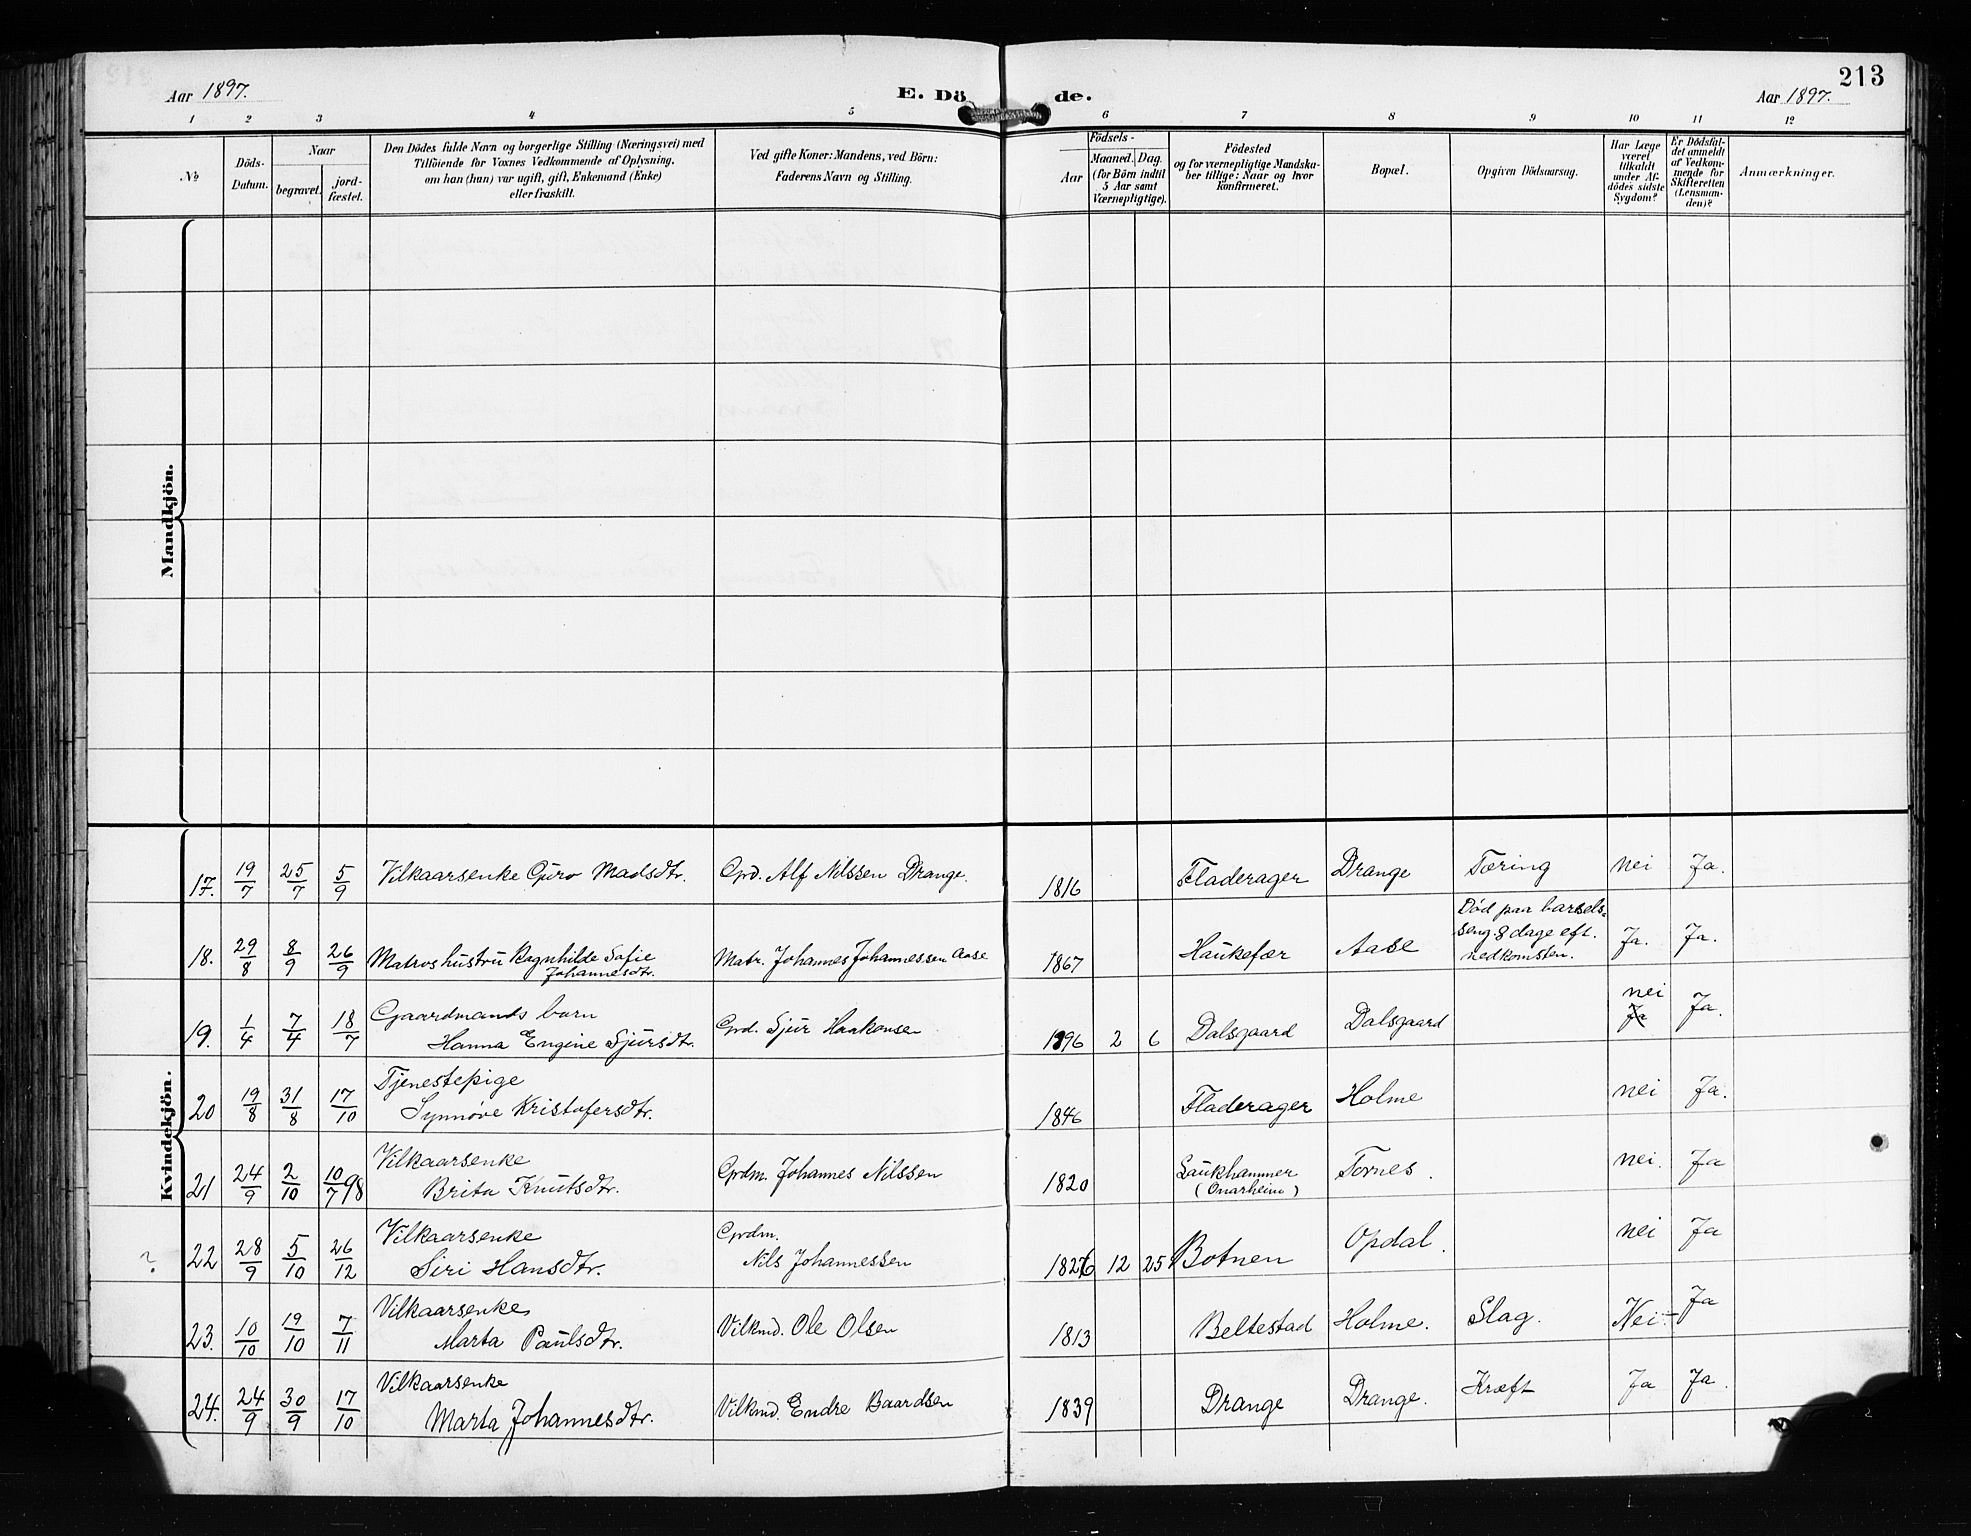 213
Aar 1897.
E. Dö de.
Aar 1897.
1 2 3 4 5 6 7 8 9 10 11 12
No
Döds-
Datum.
Naar
begravet.
jord-
fæstet.
Den Dödes fulde Navn og borgerlige Stilling (Næringsvei) med
Tilföiende for Voxnes Vedkommende af Oplysning,
om han (hun) var ugift, gift, Enkemand (Enke)
eller fraskilt.
Ved gifte Koner: Mandens, ved Börn:
Faderens Navn og Stilling.
Födsels-
Aar
Maaned. Dag.
(for Börn indtil
5 Aar samt
Værnepligtige).
Födested
og for værnepligtige Mandska-
ber tillige: Naar og hvor
konfirmeret.
Bopæl.
Opgiven Dödsaarsag.
Har Læge
været
tilkaldt
under Af-
dödes sidste
Sygdom?
Er Dödsfal-
det anmeldt
af Vedkom-
mende for
Skifteretten
(Lensman-
den)?
Anmærkninger.
Mandkjön.
Kvindekjön.
17. 19/7 25/7 5/9 Vilkaarsenke Guro Madsdtr. Grd. Alf Nilssen Drange. 1816 Fladerager Drange Tæring nei Ja.
18. 29/8 8/9 26/9 Matros hustru Ragnhilde Sofie
Johannesdtr. Matr. Johannes Johannessen Aase 1867 Haukefær Aase Död paa barsels-
seng. 8 dage eft.
nedkomsten. Ja. Ja.
19. 1/4 7/4 18/7 Gaardmands barn
Hanna Engine Sjursdt. Grd. Sjur Haakonsen 1896 2 6 Dalsgaard Dalsgaard nei
Ja Ja.
20 19/8 31/8 17/10 Tjenestepige
Synnöve Kristofersdtr. 1846 Fladerager Holme nei Ja.
21 24/9 2/10 10/7 98 Vilkaarsenke
Brita Knutsdtr. Grdm. Johannes Nilssen 1820 Laukhammer
(Onarheim) Tornes. nei. Ja
? 22 28/9 5/10 26/12 Vilkaarsenke
Siri Hansdtr. Grdm.
Nils Johannessen 1826 12 25 Botnen Opdal. nei Ja
23. 10/10 19/10 7/11 Vilkaarsenke
Marta Paulsdtr. Vilkmd. Ole Olsen 1813 Beltestad Holme. Slag. Nei- Ja
24. 24/9 30/9 17/10 Vilkaarsenke
Marta Johannesdtr. Vilkmd. Endre Baardsen 1839 Drange Drange. Kræft Ja Ja.